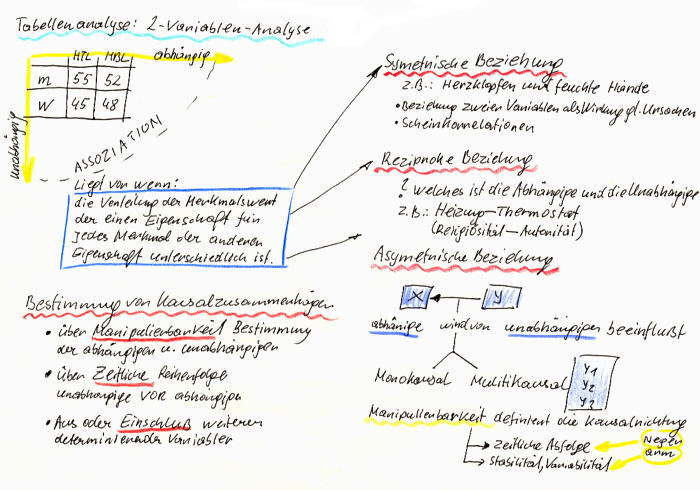 Tabellenanalyse: 2-Variablen-Analyse
HTL HBL abhängig
m 55 52
w 45 48
unabhängig
ASSOZIATION
Liegt vor wenn:
die Verteilung der Merkmalswert
der einen Eigenschaft für
Jedes Merkmal der anderen
Eigenschaft unterschiedlich ist.
Bestimmung von Kausalzusammenhängen
• über Manipulierbarkeit Bestimmung
der abhängigen u. unabhängigen
• über Zeitliche Reihenfolge
unabhängige VOR abhängigen
• Aus oder Einschluß weiterer
determinierender Variabler
Symetrische Beziehung
z.B.: Herzklopfen und feuchte Hände
• Beziehung zweier Variablen als Wirkung gl. Ursachen
• Scheinkorrelationen
Reziproke Beziehung
? welches ist die Abhängige und die Unabhängige
z.B.: Heizung-Thermostat
(Religiösität-Autorität)
Asymetrische Beziehung
X Y
abhänige wird von unabhängigen beeinflußt
Monokausal Multikausal
Y1
Y2
Y3
Manipulierbarkeit definiert die Kausalrichtung
zeitliche Abfolge
Stabilität, Variabilität